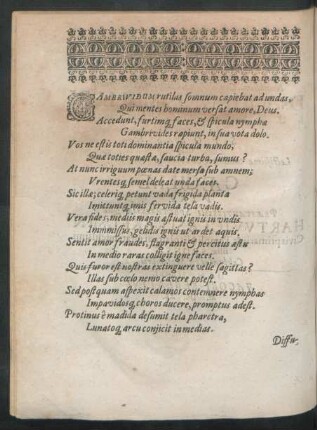 GAMBRIVIBUM rutilas somnum capiebat ad undas,
Qui mentes hominum versat amore, Deus.
Accedunt, furtimq; faces, & spicula nymphæ
Gambrivides rapiunt, in sua vota dolo.
Vos ne estis toti dominantia spicula mundo,
Quæ toties quastæ, saucia turba, sumus?
At nunc irriguum pœnas date mersa sub amnem;
Urentesq; semel deleat unda faces.
Sic illæ; celeriq; petunt vada frigida planta
Jniciuntq; imis fervida tela vadis.
Vera fides, mediis magis æstuat ignis in undis.
Jmmissus, gelidis ignis ut ardet aquis,
Sentit amor fraudes, flagranti & percitus æstu
In medio raras colligit igne faces.
Quis furor est nostras extinguere velle sagittas?
Illas sub cœlo nemo cavere potest.
Sed postquam aspexit calamos contemnere nymphas
Impavidosq; choros ducere, promptus adest.
Protinus è madida desumit tela pharetra,
Lunatoq; arcu conjicit in medias.
Diffu-